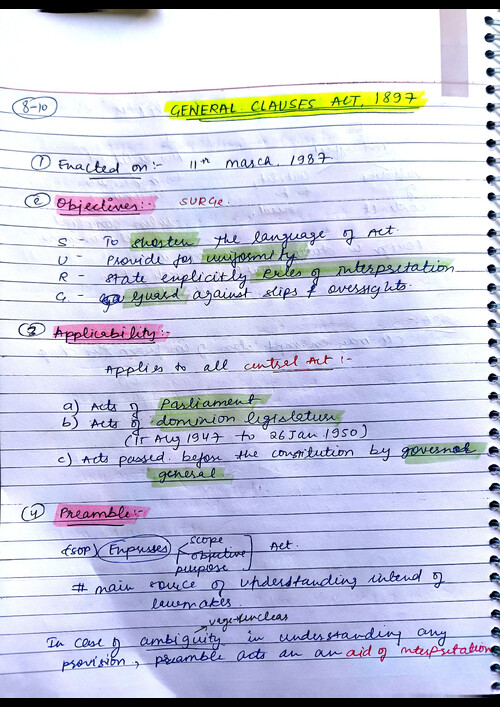 8-10
GENERAL CLAUSES ACT, 1897
① Enacted on:- 11th March, 1987
② Objectives:- SURGe.
S - To shorten the language of Act.
U - Provide for uniformity
R - State explicitly rules of interpretation
G - guard against slips & oversights.
③ Applicability:-
Applies to all central Act :-
a) Acts of Parliament
b) Acts of dominion legislature
(15 Aug 1947 to 26 Jan 1950)
c) Acts passed before the constitution by governor
general
④ Preamble:-
(SOP) Expresses scope
objective Act.
purpose
# main source of understanding intend of
lawmakes.
vage/unclear
In case of ambiguity in understanding any
provision, preamble acts an an aid of interpretation